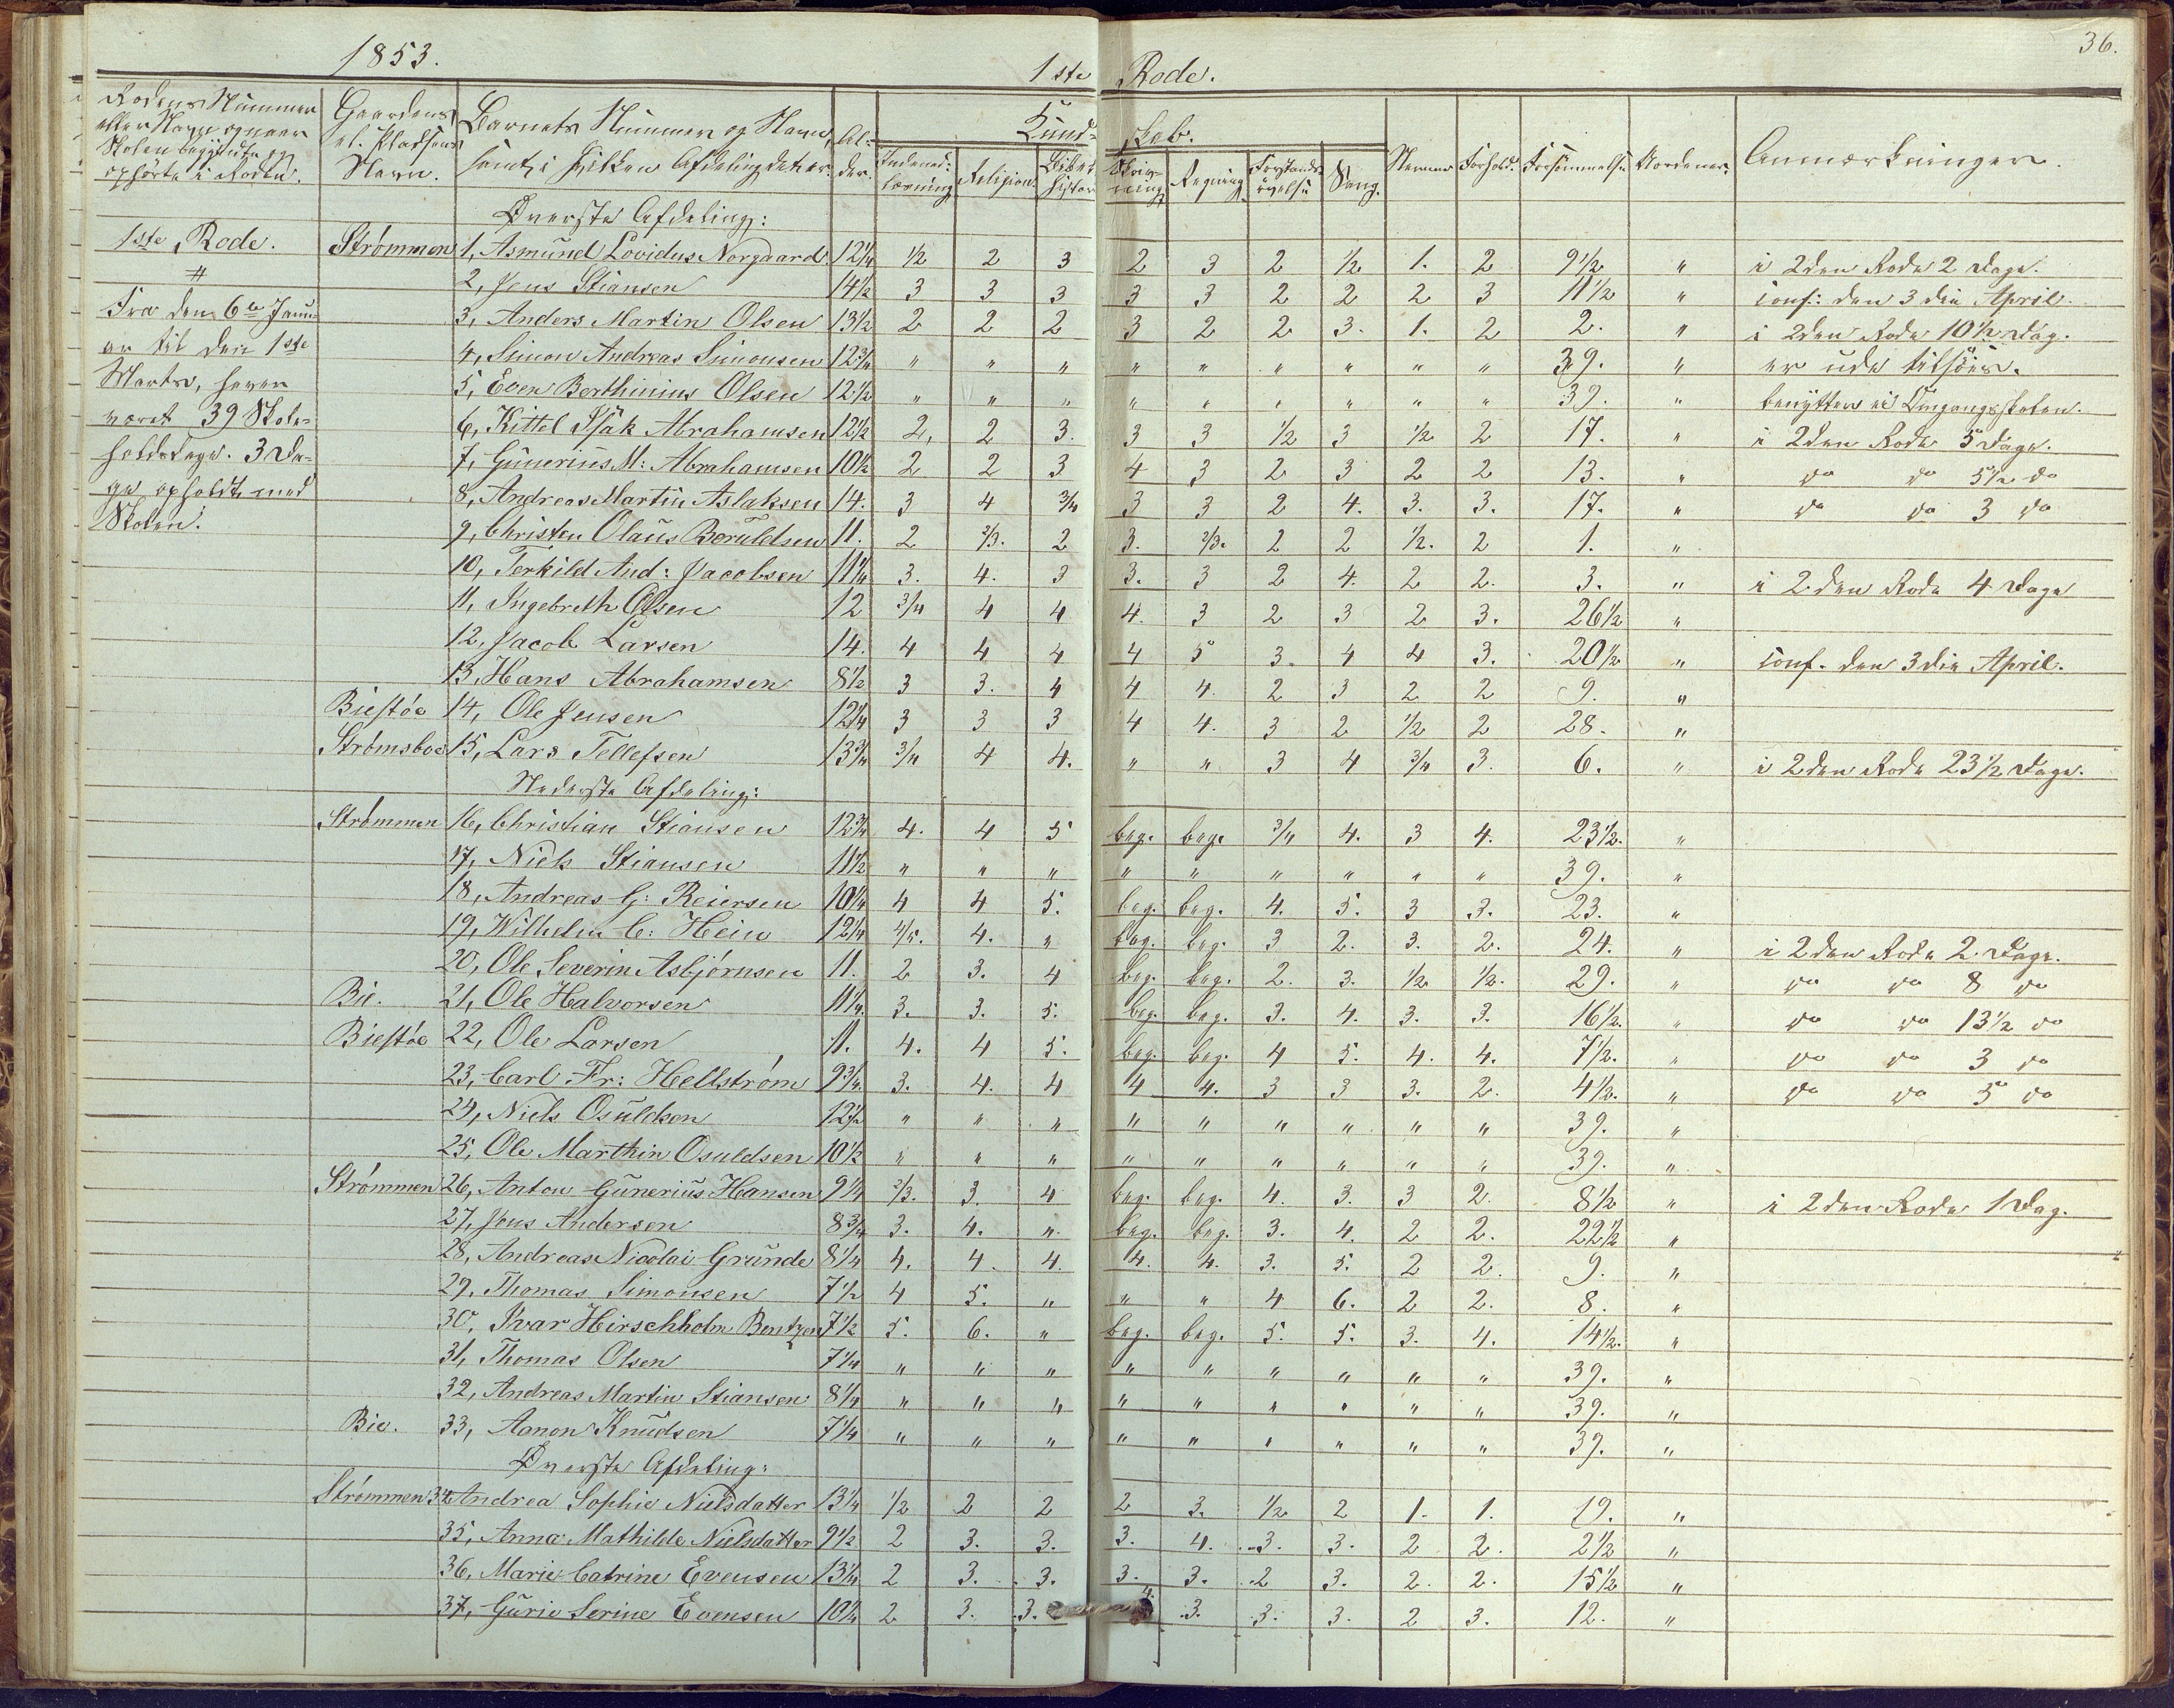 36.
1853. 1ste Rode.
Rodens Nummer eller Navn og naar Skolen begyndte og ophörte i Roden. | Gaardens el. Pladsens Navn. | Barnets Nummer og Navn samt i hvilken Afdeling det er. | Al-der. | Kund-skab. | Nemme | Forhold. | Forsömmelse | Anmærkninger.
Indenad-læsning | Religion. | Bibel-histor | Skriv-ning | Regning. | Forstands-övelse | Sang.
Øverste Afdeling:
1ste Rode. Strømmen 1, Asmund Lovidus Norgaard. 12 1/4 1/2 2 3 2 3 2 1/2 1. 2 9 1/2 " i 2den Rode 2 Dage.
2, Jens Stiansen 14 1/2 3 3 3 3 3 2 2 2 3 11 1/2 " conf: den 3die April.
Fra den 6te Janu- 3, Anders Martin Olsen 13 1/2 2 2 2 3 2 2 3. 1. 2 2. " i 2den Rode 10 1/2 Dag.
ar til den 1ste 4, Simon Andreas Simonsen 12 3/4 " " " " " " " " " 39. " er ude tilsöes.
Marts, haver 5, Even Berthinius Olsen 12 1/2 " " " " " " " " " 39. " benytter ei Omgangsskolen.
været 39 Skole- 6, Kittel Isak Abrahamsen 12 1/2 2, 2 3. 3 3 1/2 3 1/2 2 17. " i 2den Rode 5 Dage.
holdsdage. 3 Da- 7, Gunerius M: Abrahamsen 10 1/2 2 2 3 4 3 2 3 2 2 13. " do do 5 1/2 do
ge opholdt med 8, Andreas Martin Aslaksen 14. 3 4 3/4 3 3 2 4. 3. 3. 17. " do do 3 do
Skolen. 9, Christen Olaus Beruldsen 11. 2 2/3. 2 3. 2/3. 2 2 1/2. 2 1. "
10, Terkild And: Jacobsen 11 1/4 3. 4. 3 3. 3 2 4. 2 2. 3. " i 2den Rode 4 Dage
11, Ingebreth Olsen 12 3/4 4 4 4. 3 2 3 2 3. 26 1/2 "
12, Jacob Larsen 14. 4 4 4 4 5 3. 4 4 3. 20 1/2 " conf. den 3die April.
13, Hans Abrahamsen 8 1/2 3 3. 4 4 4. 2 3 2 2 9. "
Biestöe 14, Ole Jensen 12 1/4 3 3 3 4 4. 3 2 1/2 2 28. "
Strømsboe 15, Lars Tellefsen 13 3/4 3/4 4 4. " " 3 4 3/4 3. 6. " i 2den Rode 23 1/2 Dage.
Nederste Afdeling:
Strømmen 16, Christian Stiansen 12 3/4 4. 4 5 beg. beg. 3/4 4. 3 4. 23 1/2. "
17, Niels Stiansen 11 1/2 " " " " " " " " " 39. "
18, Andreas G: Reiersen 10 1/4 4 4 5. beg. beg. 4. 5. 3 3. 23. "
19, Wilhelm C: Hein 12 1/4 4/5. 4. " beg. beg. 3 2. 3. 2. 24. " i 2den Rode 2 Dage.
20, Ole Severin Asbjörnsen 11. 2 3. 4 beg. beg. 2. 3. 1/2 1/2. 29. " do do 8 do
Bie. 21, Ole Halvorsen 11 1/4. 3. 3. 5. beg. beg. 3. 4. 3. 3. 16 1/2. " do do 13 1/2 do
Biestöe 22, Ole Larsen 11. 4. 4 5. beg. beg. 4 5. 4. 4. 7 1/2. " do do 3 do
23, Carl Fr: Hellström 9 3/4. 3. 4. 4 4 4. 3 3 3. 2. 4 1/2. " do do 5 do
24, Niels Osuldsen 12 1/2 " " " " " " " " " 39. "
25, Ole Marthin Osuldsen 10 1/2 " " " " " " " " " 39. "
Strømmen 26, Anton Gunerius Hansen 9 1/4 2/3. 3. 4 beg. beg. 4. 3. 3 2. 8 1/2 " i 2den Rode 1 Dag.
27, Jens Andersen 8 3/4 3. 4. " beg. beg. 3. 4. 2 2. 22 1/2 "
28, Andreas Nicolai Grunde 8 1/4 4. 4. 4. 4. 4. 3. 5. 2 2. 9. "
29, Thomas Simonsen 7 1/2 4 5. " " " 4 6. 2 2. 8. "
30, Ivar Hirschholm Bentzen 7 1/2 5. 6. " beg. beg. 5. 5. 3. 4. 14 1/2. "
31, Thomas Olsen 7 1/4 " " " " " " " " " 39. "
32, Andreas Martin Stiansen 8 1/4 " " " " " " " " " 39. "
Bie. 33, Aanon Knudsen 7 1/4 " " " " " " " " " 39. "
Øverste Afdeling:
Strømmen 34, Andrea Sophie Nielsdatter 13 1/4 1/2 2 2 2 3. 1/2 2 1. 1. 19. "
35, Anna Mathilde Nielsdatter 9 1/2 2 3. 3. 3. 4. 3. 3. 2 2. 2 1/2 "
36, Marie Catrine Evensen 13 1/4 2 3. 3. 3. 3. 2 3. 2. 2. 15 1/2 "
37, Gurie Serine Evensen 10 1/4 2 3. 3. 4. 3. 3. 3. 2 3. 12. "